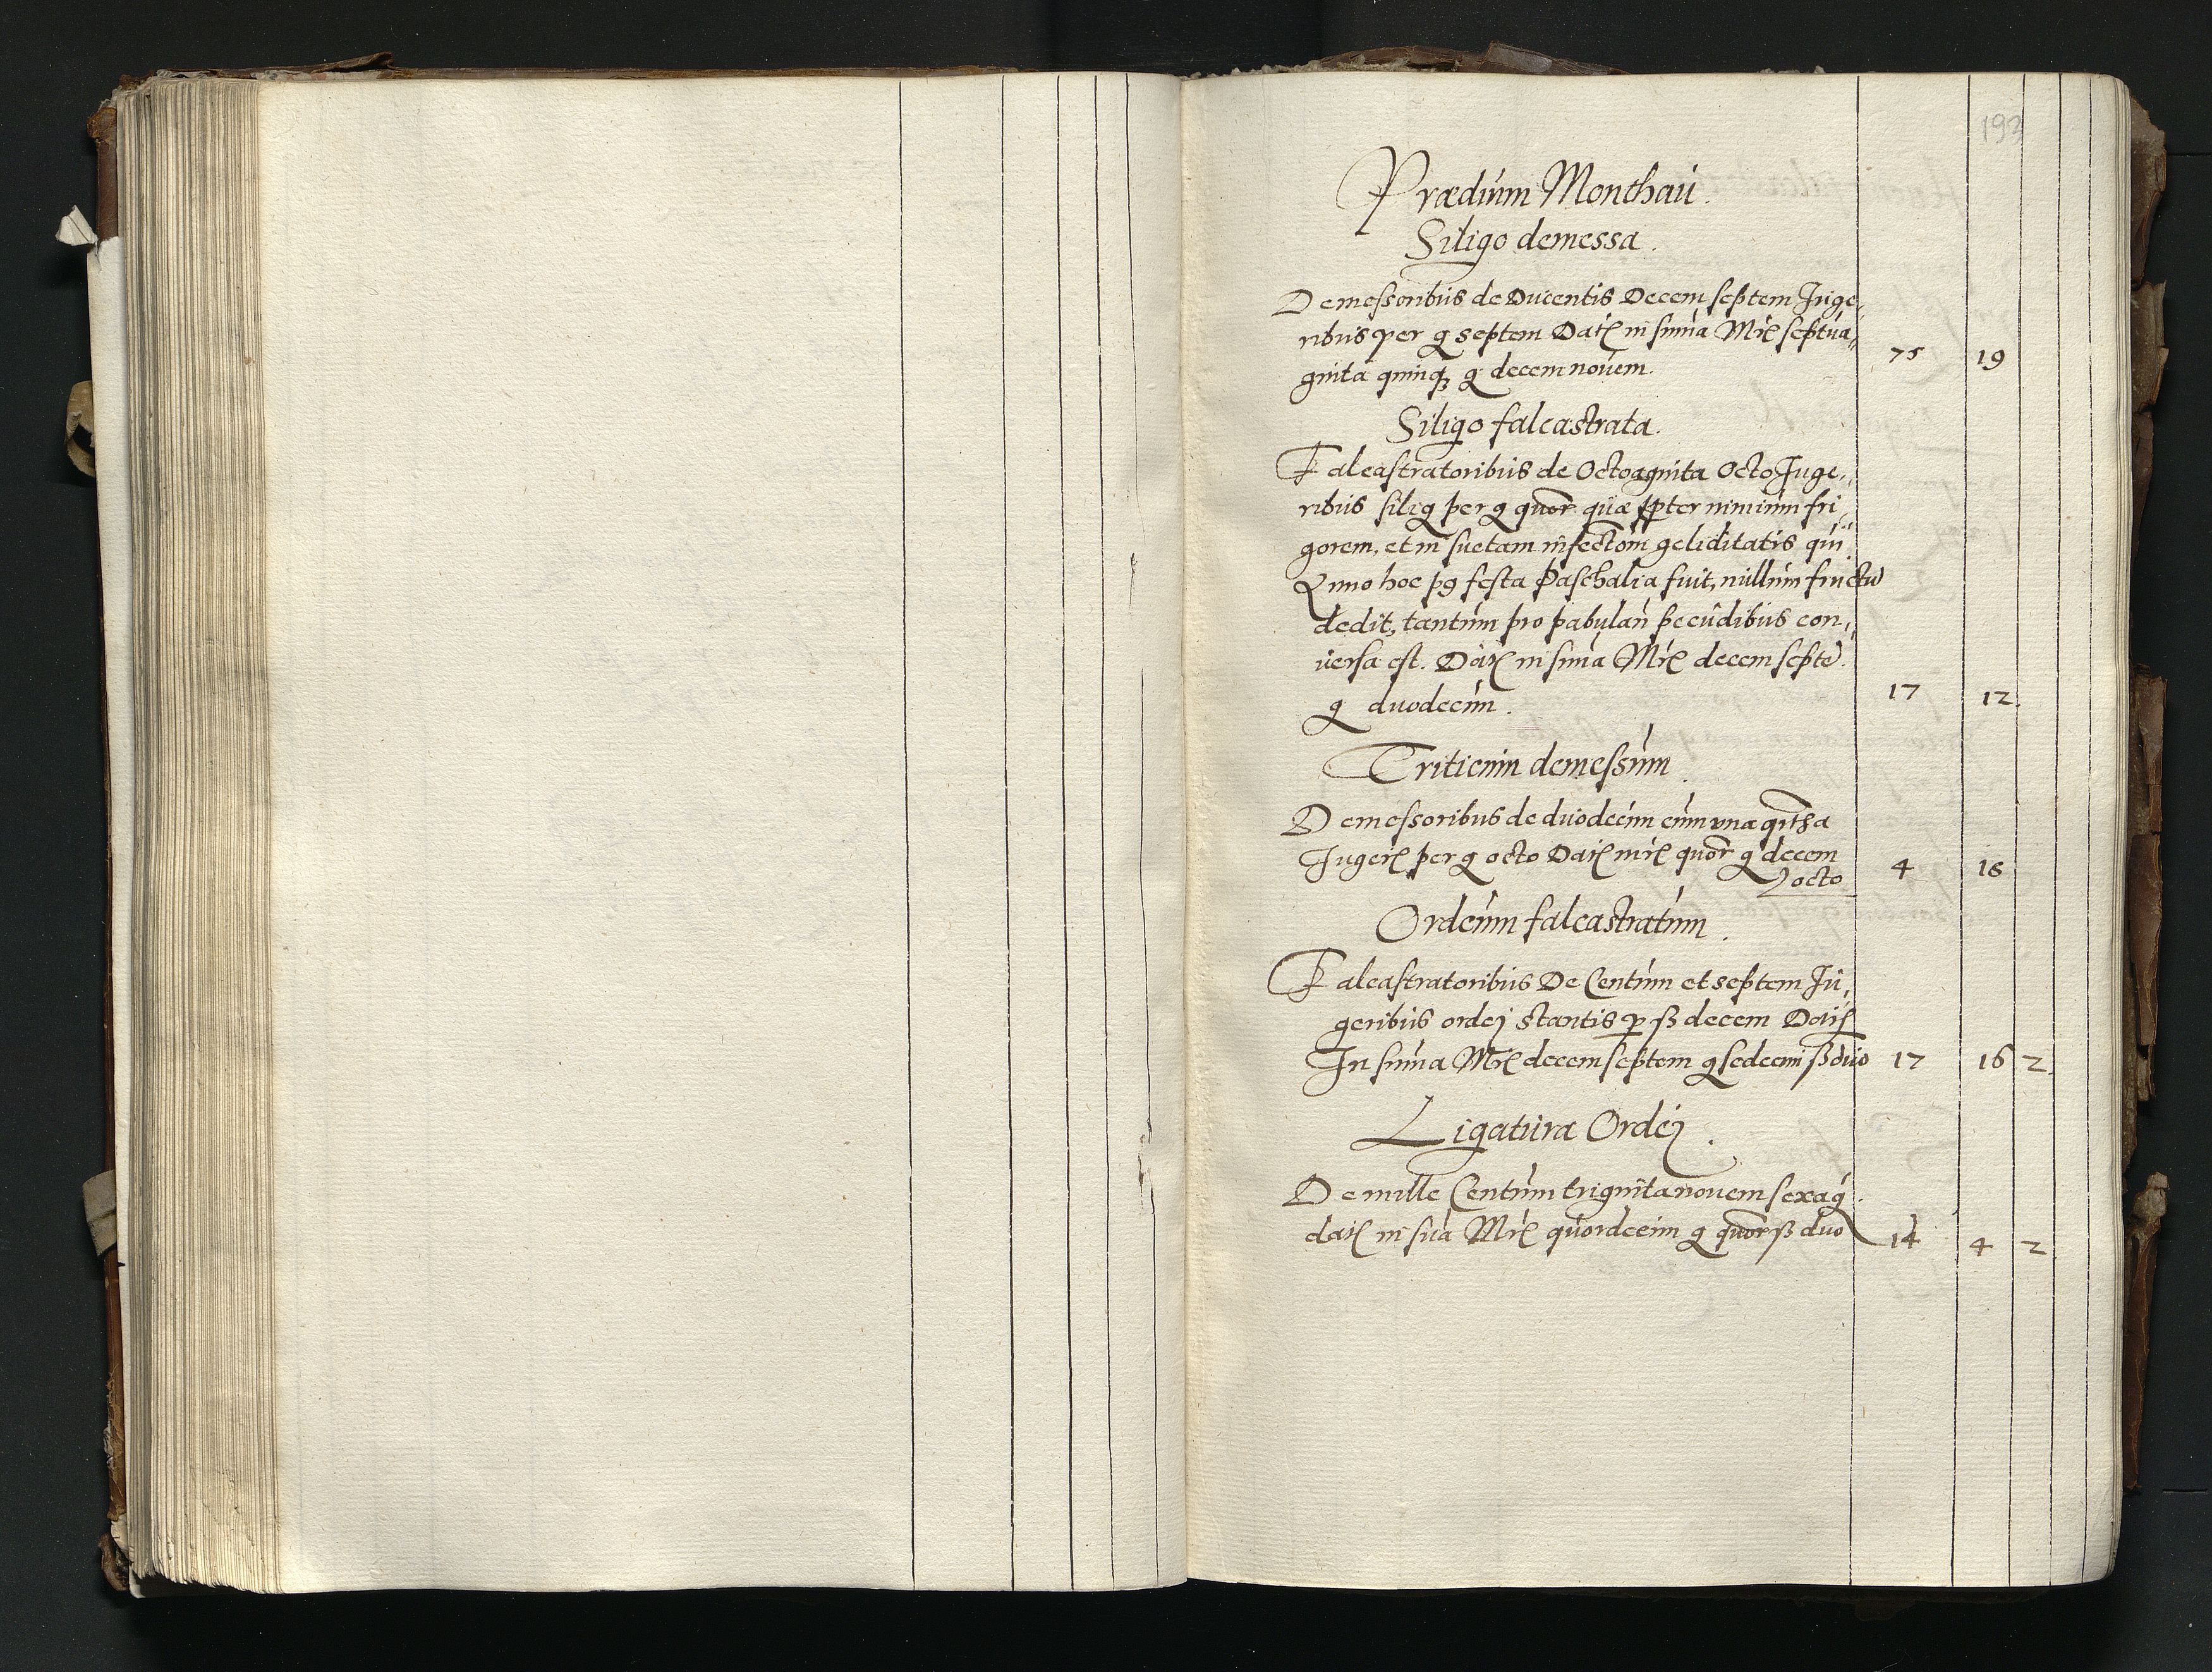 193
Prædium Monthaŭ.
Siligo demessa.
Demeſsoribŭs de Ducentis Decem ſeptem Juge„
ribŭs per g septem Datꝭ in sum̄a Mrꝭ septŭa„
ginta quinqꝫ g decem nouem. 75 19
Siligo falcastrata.
Falcaſtratoribŭs de Octoaginta Octo Juge„
ribŭs silig per g quor quæ ꝓpter nimiŭm fri„
gorem, et in suetam infectom geliditatis qui
Anno hoc pg feſta Paſchalia fuit, nŭllŭm fructū
dedit, tantŭm pro pabulan pecŭdibŭs con„
ŭersa eſt. Datꝭ in sum̄a Mrꝭ decem ſeptē
g duodecim. 17 12.
Triticŭm demeſsŭm.
Demeſsoribus de dŭodecim cŭm vna qrtha
Jugerꝭ per g octo Datꝭ mrꝭ quor g decem
octo 4 18
Ordeŭm falcastratŭm.
Falcaſtratoribŭs De Centŭm et septem Jŭ„
geribŭs ordej stantis ꝑ ß decem Datꝭ
In sum̄a Mrꝭ decem ſeptem g sedecim ß dŭo 17 16 2.
Ligatŭra Ordej.
De mille Centŭm triginta nouem sexag.
datꝭ in sūa Mrꝭ qŭordecim g quor ß duo 14 4 2